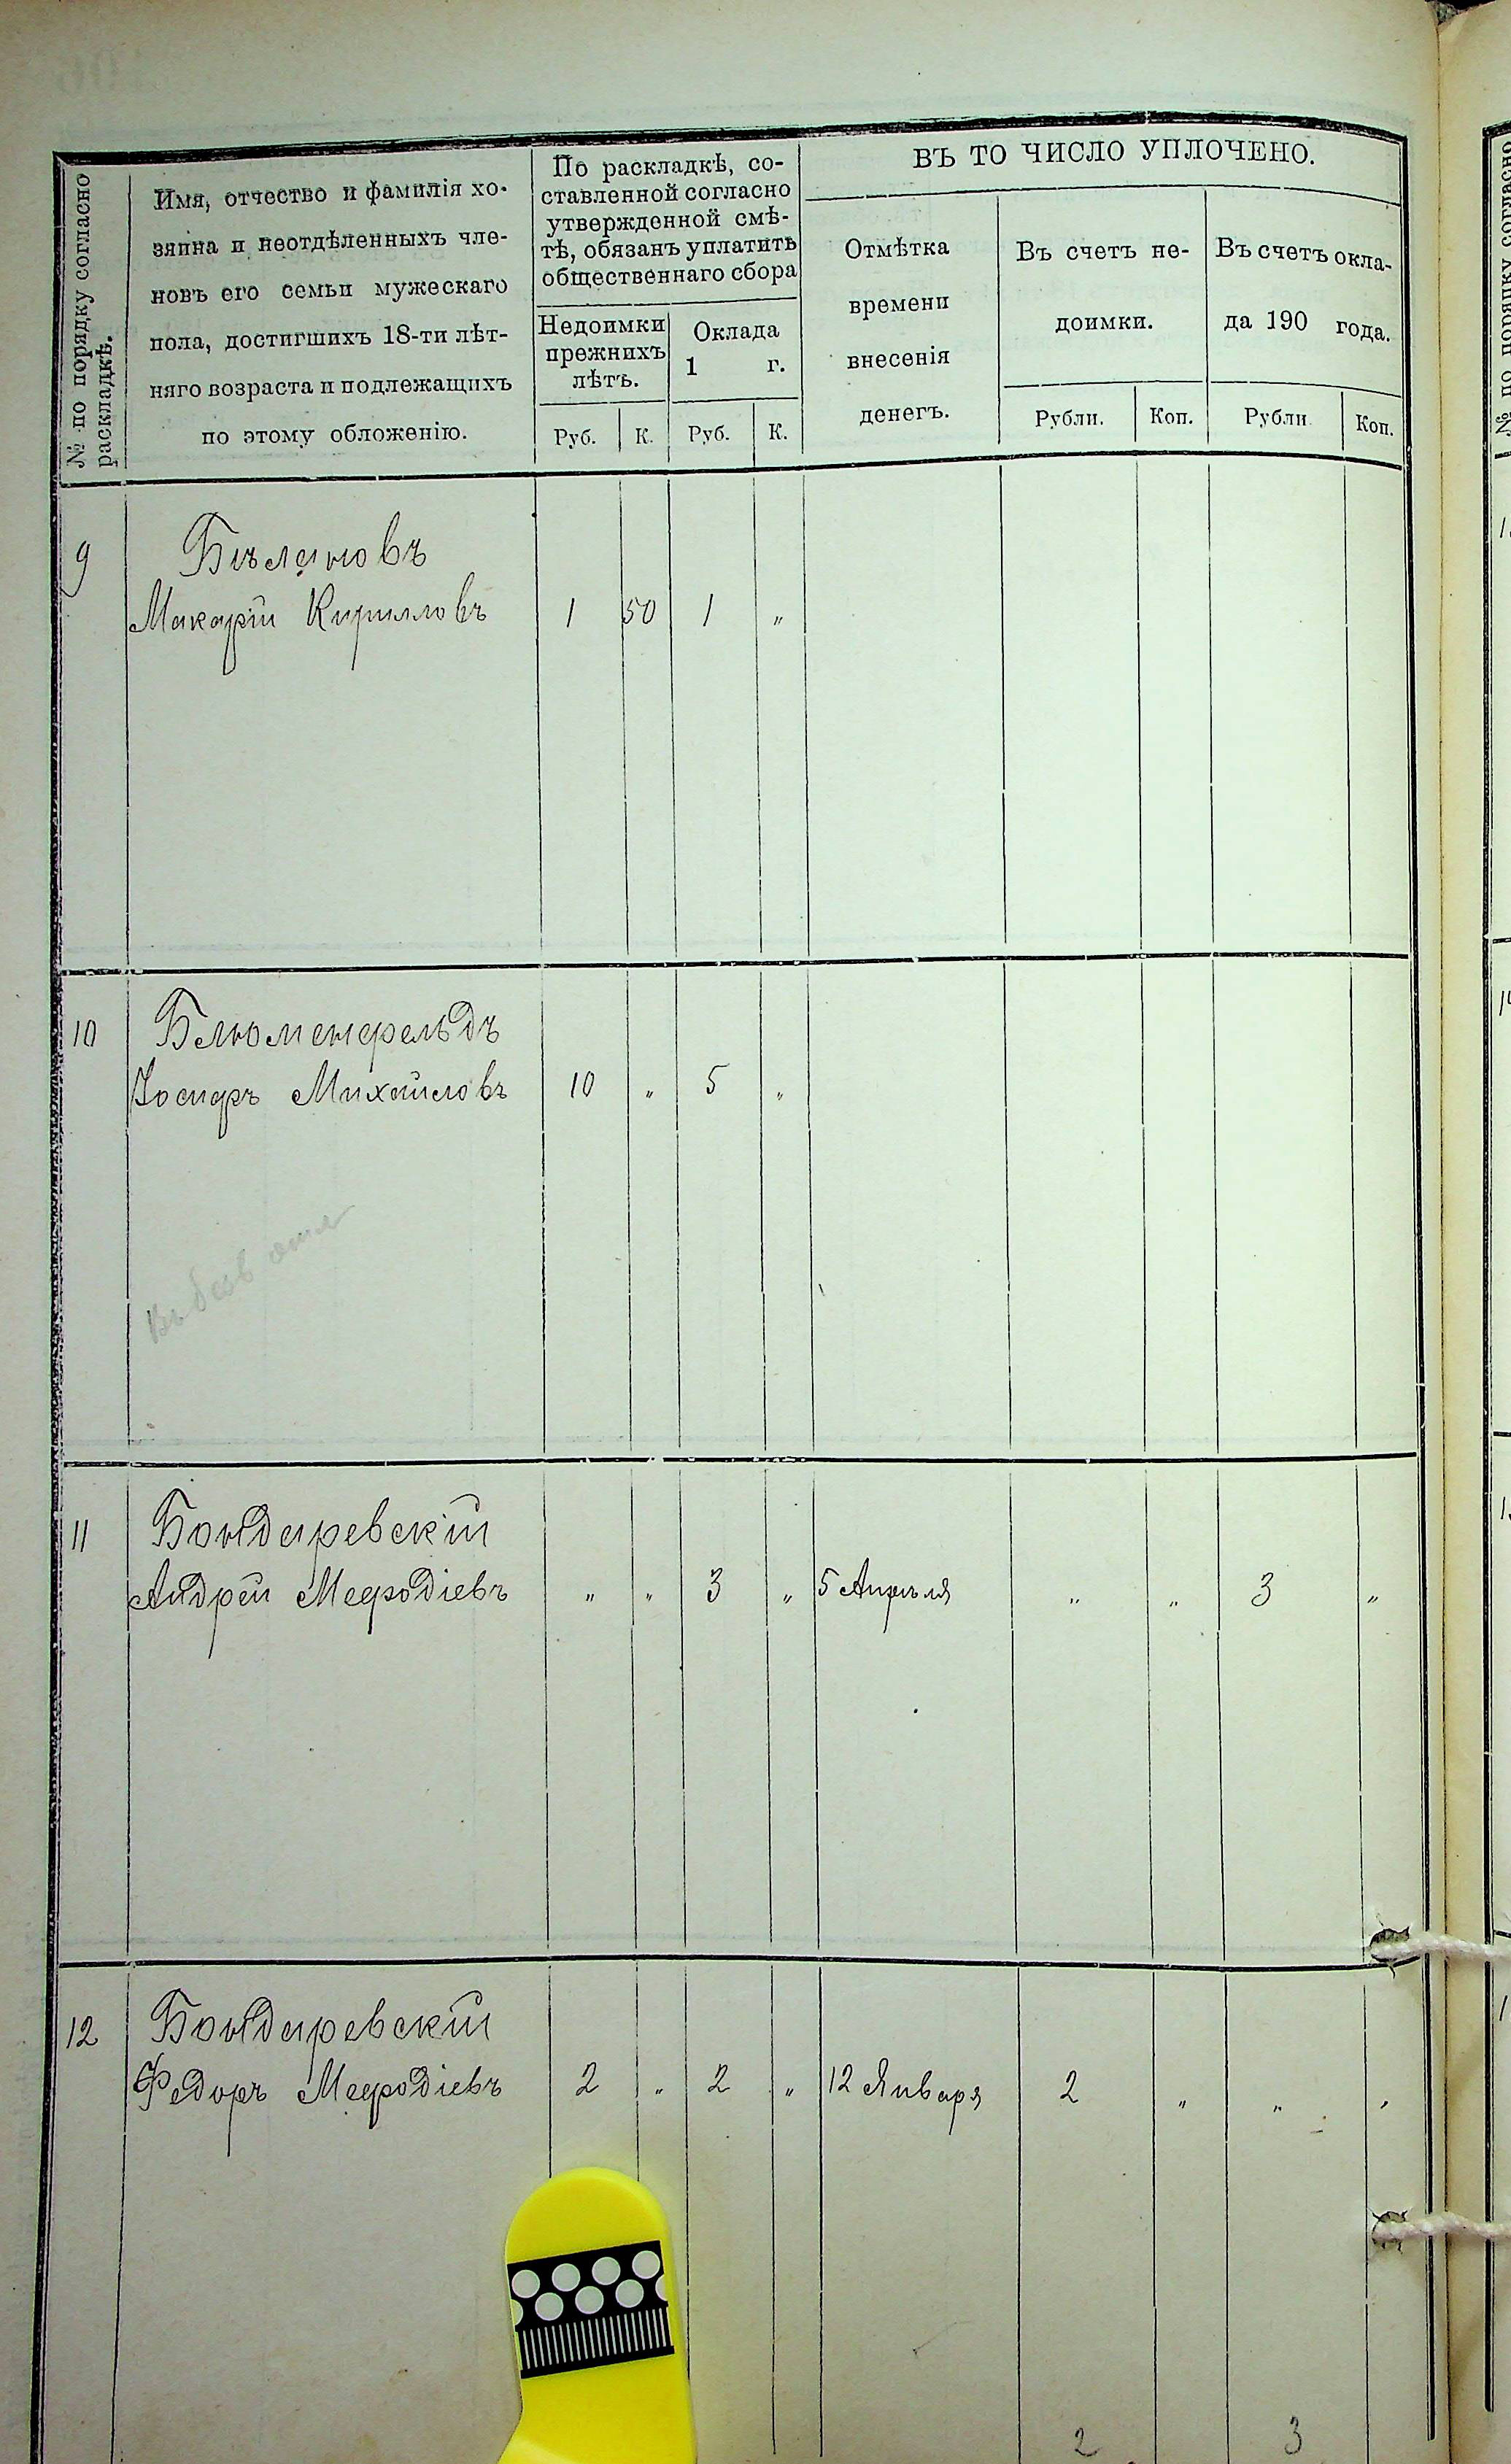 № по порядку согласно
раскладкѣ.
Имя, отчество и фамилія хо-
зяина и неотдѣленныхъ чле-
новъ его семьи мужескаго
пола, достигшихъ 18-ти лѣт-
няго возраста и подлежащихъ
по этому обложенію.
По раскладкѣ, со-
ставленной согласно
утвержденной смѣ-
тѣ, обязанъ уплатить
общественнаго сбора
Недоимки
прежнихъ
лѣтъ.
Оклада
1 г.
Руб. К. Руб. К.
ВЪ ТО ЧИСЛО УПЛОЧЕНО.
Отмѣтка
времени
внесенія
денегъ.
Въ счетъ не-
доимки.
Въ счетъ окла-
да 190 года.
Рубли. Коп. Рубли Коп.
9 Бѣлановъ
Макарій Кирилловъ 1 50 1 „
10 Блюменфельдъ
Іосифъ Михайловъ 10 „ 5 „
11 Бондаревскій
Андрей Мефодіевъ „ „ 3 „ 5 Апрѣля „ „ 3 „
12 Бондаревскій
Федоръ Мефодіевъ 2 „ 2 „ 12 Января 2 „ „ „
2 3